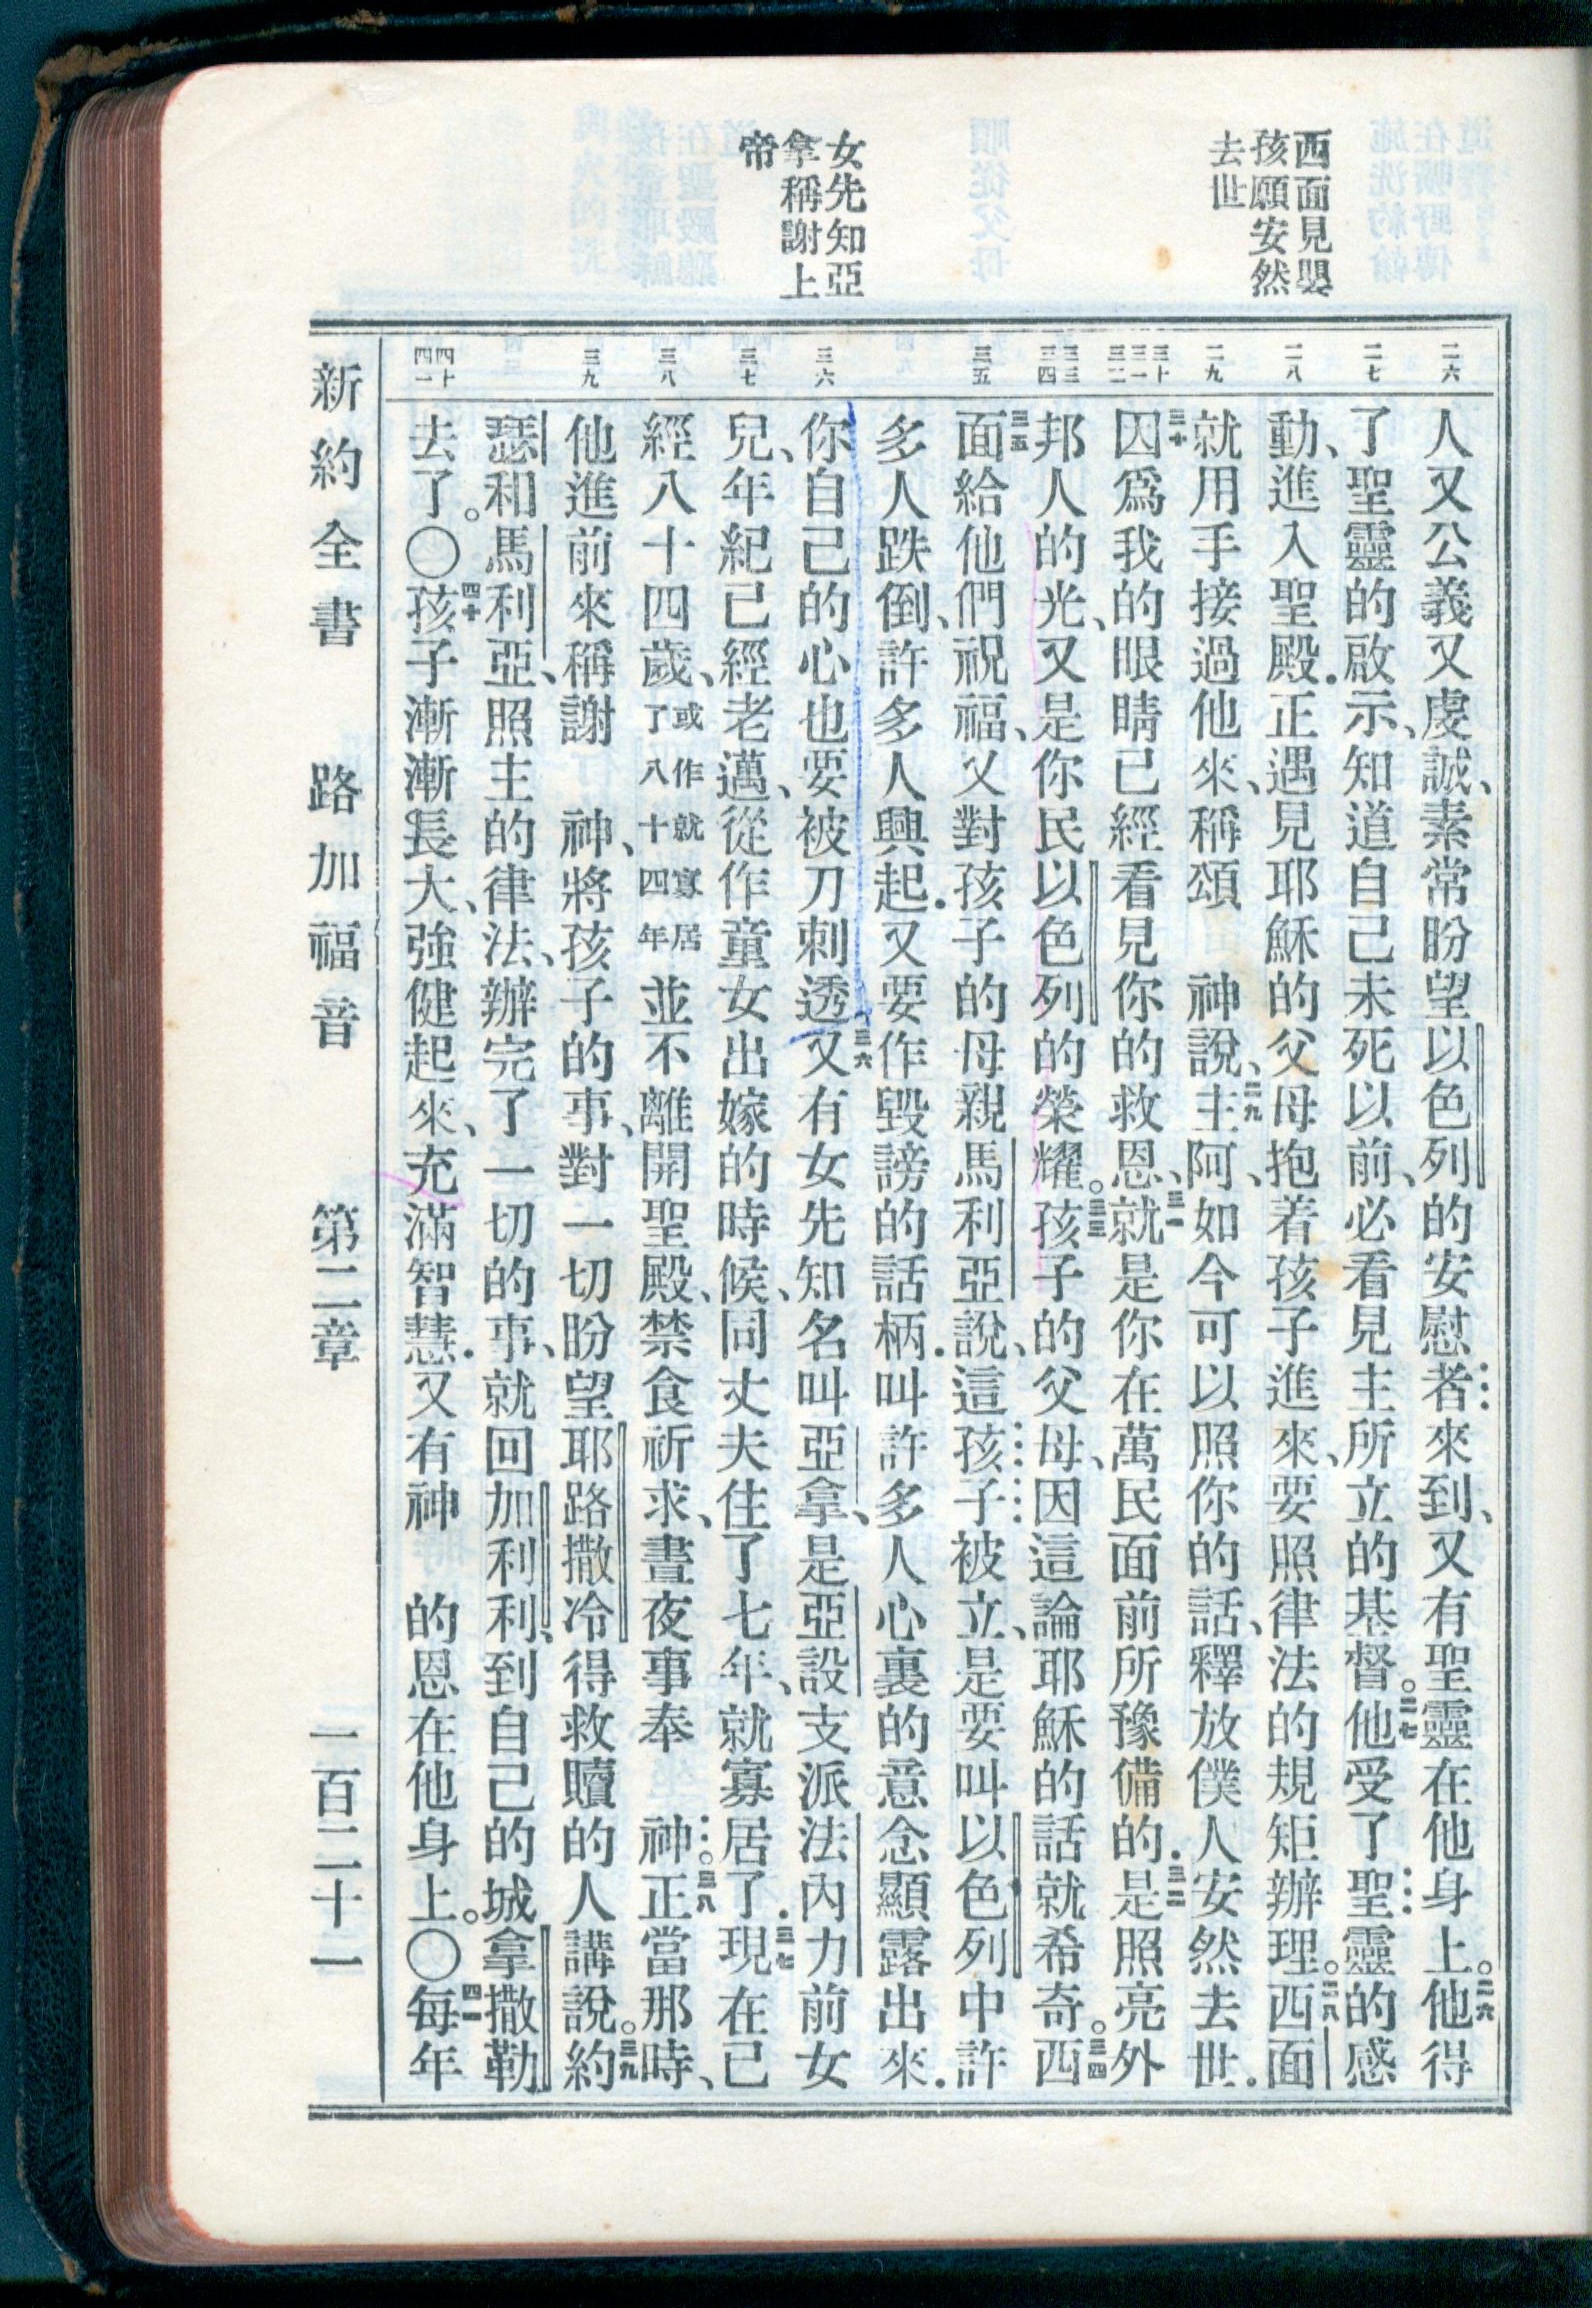 西面見嬰
孩願安然
去世
女先知亞
拿稱謝上
帝
二六
二七
二八
二九
三十
三一
三二
三三
三四
三五
三六
三七
三八
三九
四十
四一
人又公義又虔誠、素常盼望以色列的安慰者來到、又有聖靈在他身上。二六他得
了聖靈的啟示、知道自己未死以前、必看見主所立的基督。二七他受了聖靈的感
動、進入聖殿.正遇見耶穌的父母抱着孩子進來、要照律法的規矩辦理。二八西面
就用手接過他來、稱頌 神說、二九主阿、如今可以照你的話、釋放僕人安然去世.
三十因爲我的眼睛已經看見你的救恩、三一就是你在萬民面前所豫備的.三二是照亮外
邦人的光、又是你民以色列的榮耀。三三孩子的父母、因這論耶穌的話就希奇。三四西
三五面給他們祝福、又對孩子的母親馬利亞說、這孩子被立、是要叫以色列中許
多人跌倒、許多人興起.又要作毀謗的話柄.叫許多人心裏的意念顯露出來.
你自己的心也要被刀刺透三六又有女先知名叫亞拿、是亞設支派法內力前女
兒、年紀已經老邁、從作童女出嫁的時候、同丈夫住了七年、就寡居了.三七現在已
經八十四歲、或作就寡居了八十四年並不離開聖殿、禁食祈求、晝夜事奉 神。三八正當那時、
他進前來稱謝 神、將孩子的事、對一切盼望耶路撒冷得救贖的人講說。三九約
瑟和馬利亞、照主的律法、辦完了一切的事、就回加利利、到自己的城拿撒勒
去了。〇四十孩子漸漸長大、強健起來、充滿智慧.又有神 的恩在他身上。〇四一每年
新約全書 路加福音 第二章 一百二十二